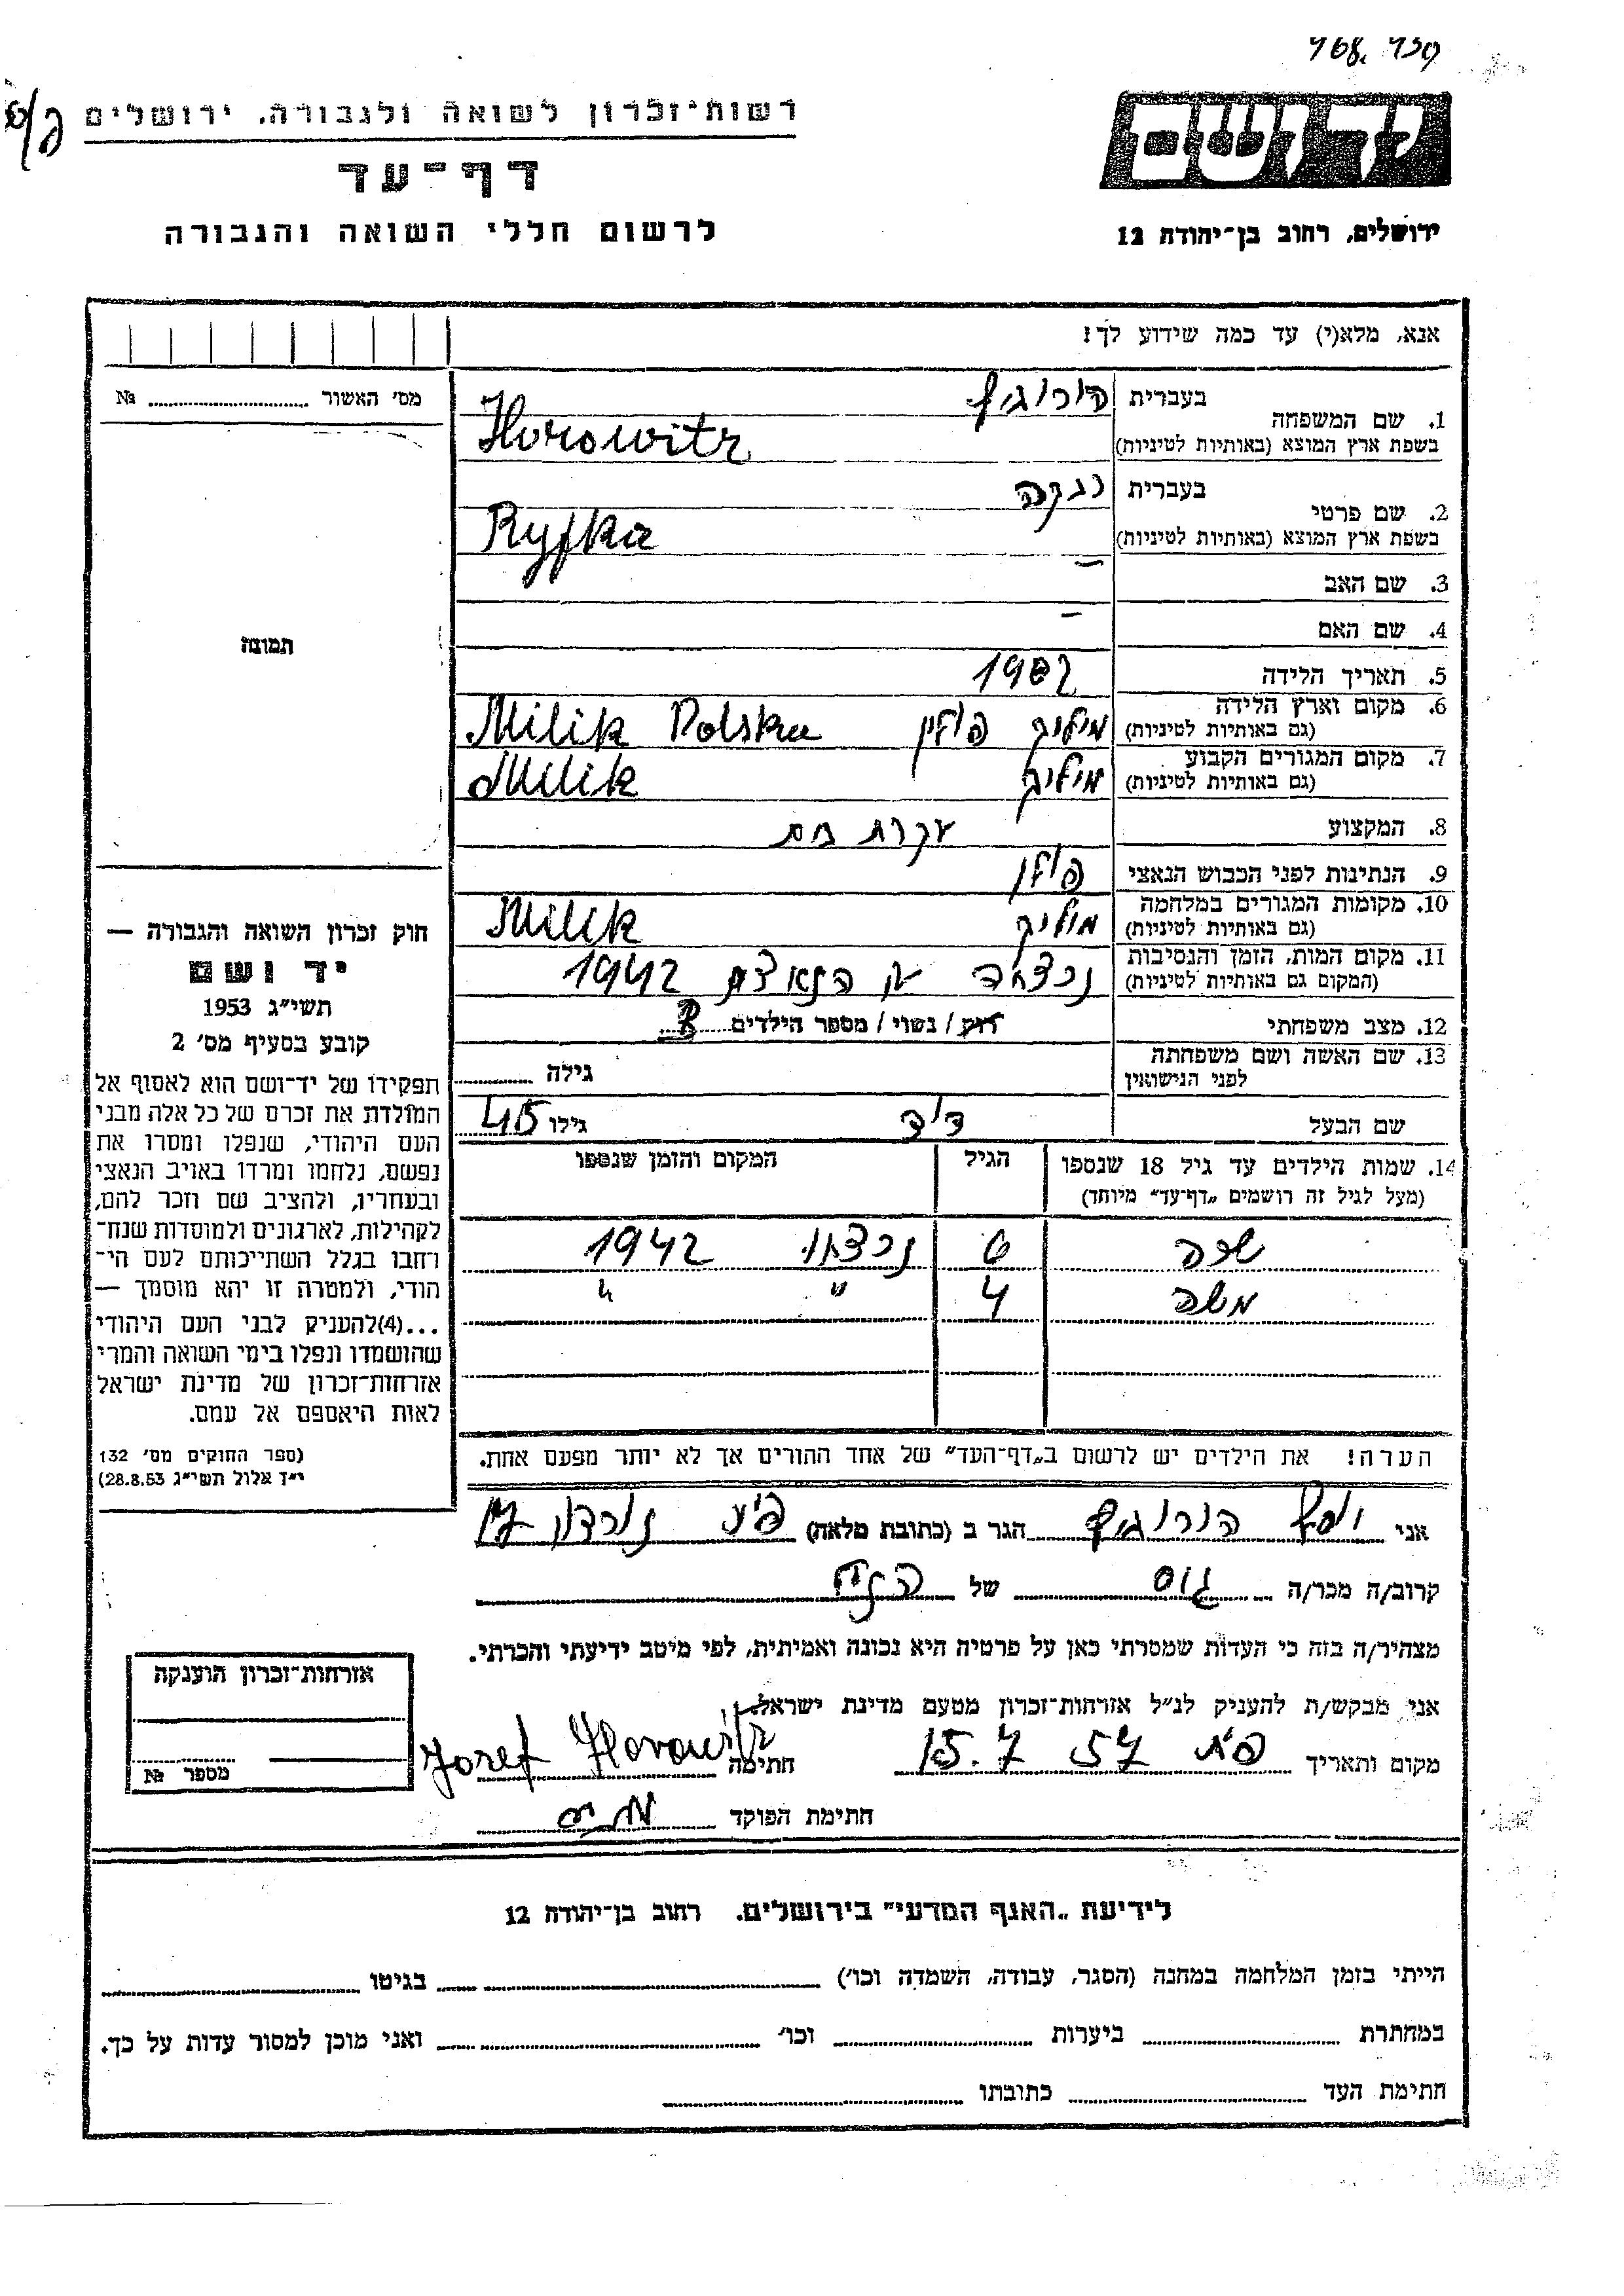 768. 759
רשות־זכרון לשואה ולגבורה, ירושלים
דף־עד
לרשום חללי השואה והגבורה
יד ושם
ירושלים, רחוב בן־יהודה 12
אנא, מלא(י) עד כמה שידוע לך!
מס׳ האשור № ........
1. שם המשפחה
בעברית הורוביץ
בשפת ארץ המוצא (באותיות לטיניות) Horowitz
2. שם פרטי
בעברית רבקה
בשפת ארץ המוצא (באותיות לטיניות) Ryfka
3. שם האב –
4. שם האם –
5. תאריך הלידה 1902
6. מקום וארץ הלידה (גם באותיות לטיניות) מיליק פולין Milik Polska
7. מקום המגורים הקבוע (גם באותיות לטיניות) מיליק Milik
8. המקצוע עקרת בית
9. הנתינות לפני הכבוש הנאצי פולין
10. מקומות המגורים במלחמה (גם באותיות לטיניות) מיליק Milik
11. מקום המות, הזמן והנסיבות (המקום גם באותיות לטיניות) נרצחה ע׳׳י הנאצים 1942
12. מצב משפחתי רוק / נשוי / מספר הילדים
13. שם האשה ושם משפחתה לפני הנישואין גילה ........
שם הבעל דוד גילו 45
14. שמות הילדים עד גיל 18 שנספו
(מעל לגיל זה רושמים „דף־עד” מיוחד)
הגיל
המקום והזמן שנספו
שרה 6 נרצחו 1942
משה 4 " "
הערה! את הילדים יש לרשום ב„דף־העד” של אחד ההורים אך לא יותר מפעם אחת.
תמונה
חוק זכרון השואה והגבורה —
יד ושם
תשי״ג 1953
קובע בסעיף מס׳ 2
תפקידו של יד־ושם הוא לאסוף אל
המולדת את זכרם של כל אלה מבני
העם היהודי, שנפלו ומסרו את
נפשם, נלחמו ומרדו באויב הנאצי
ובעוזריו, ולהציב שם וזכר להם,
לקהילות, לארגונים ולמוסדות שנח־
רחבו בגלל השתייכותם לעם הי־
הודי, ולמטרה זו יהא מוסמך —
...(4)להעניק לבני העם היהודי
שהושמדו ונפלו בימי השואה והמרי
אזרחות־זכרון של מדינת ישראל
לאות היאספם אל עמם.
(ספר החוקים מס׳ 132
י״ז אלול תשי״ג 28.8.53)
אני יוסף הורוביץ הגר ב (כתובת מלאה) נורדוי
קרוב/ה מכר/ה גיס של הנ״ל
מצהיר/ה בזה כי העדות שמסרתי כאן על פרטיה היא נכונה ואמיתית, לפי מיטב ידיעתי והכרתי.
אני מבקש/ת להעניק לנ״ל אזרחות־זכרון מטעם מדינת ישראל.
מקום ותאריך 15.7 57 חתימה Josef Horowitz
חתימת הפוקד
אזרחות־זכרון הוענקה
מספר №
לידיעת „האגף המדעי” בירושלים. רחוב בן־יהודה 12
הייתי בזמן המלחמה במחנה (הסגר, עבודה, השמדה וכו׳) ........ בגיטו ........
במחתרת ........ ביערות ........ וכו׳ ........ ואני מוכן למסור עדות על כך.
חתימת העד ........ כתובתו ........